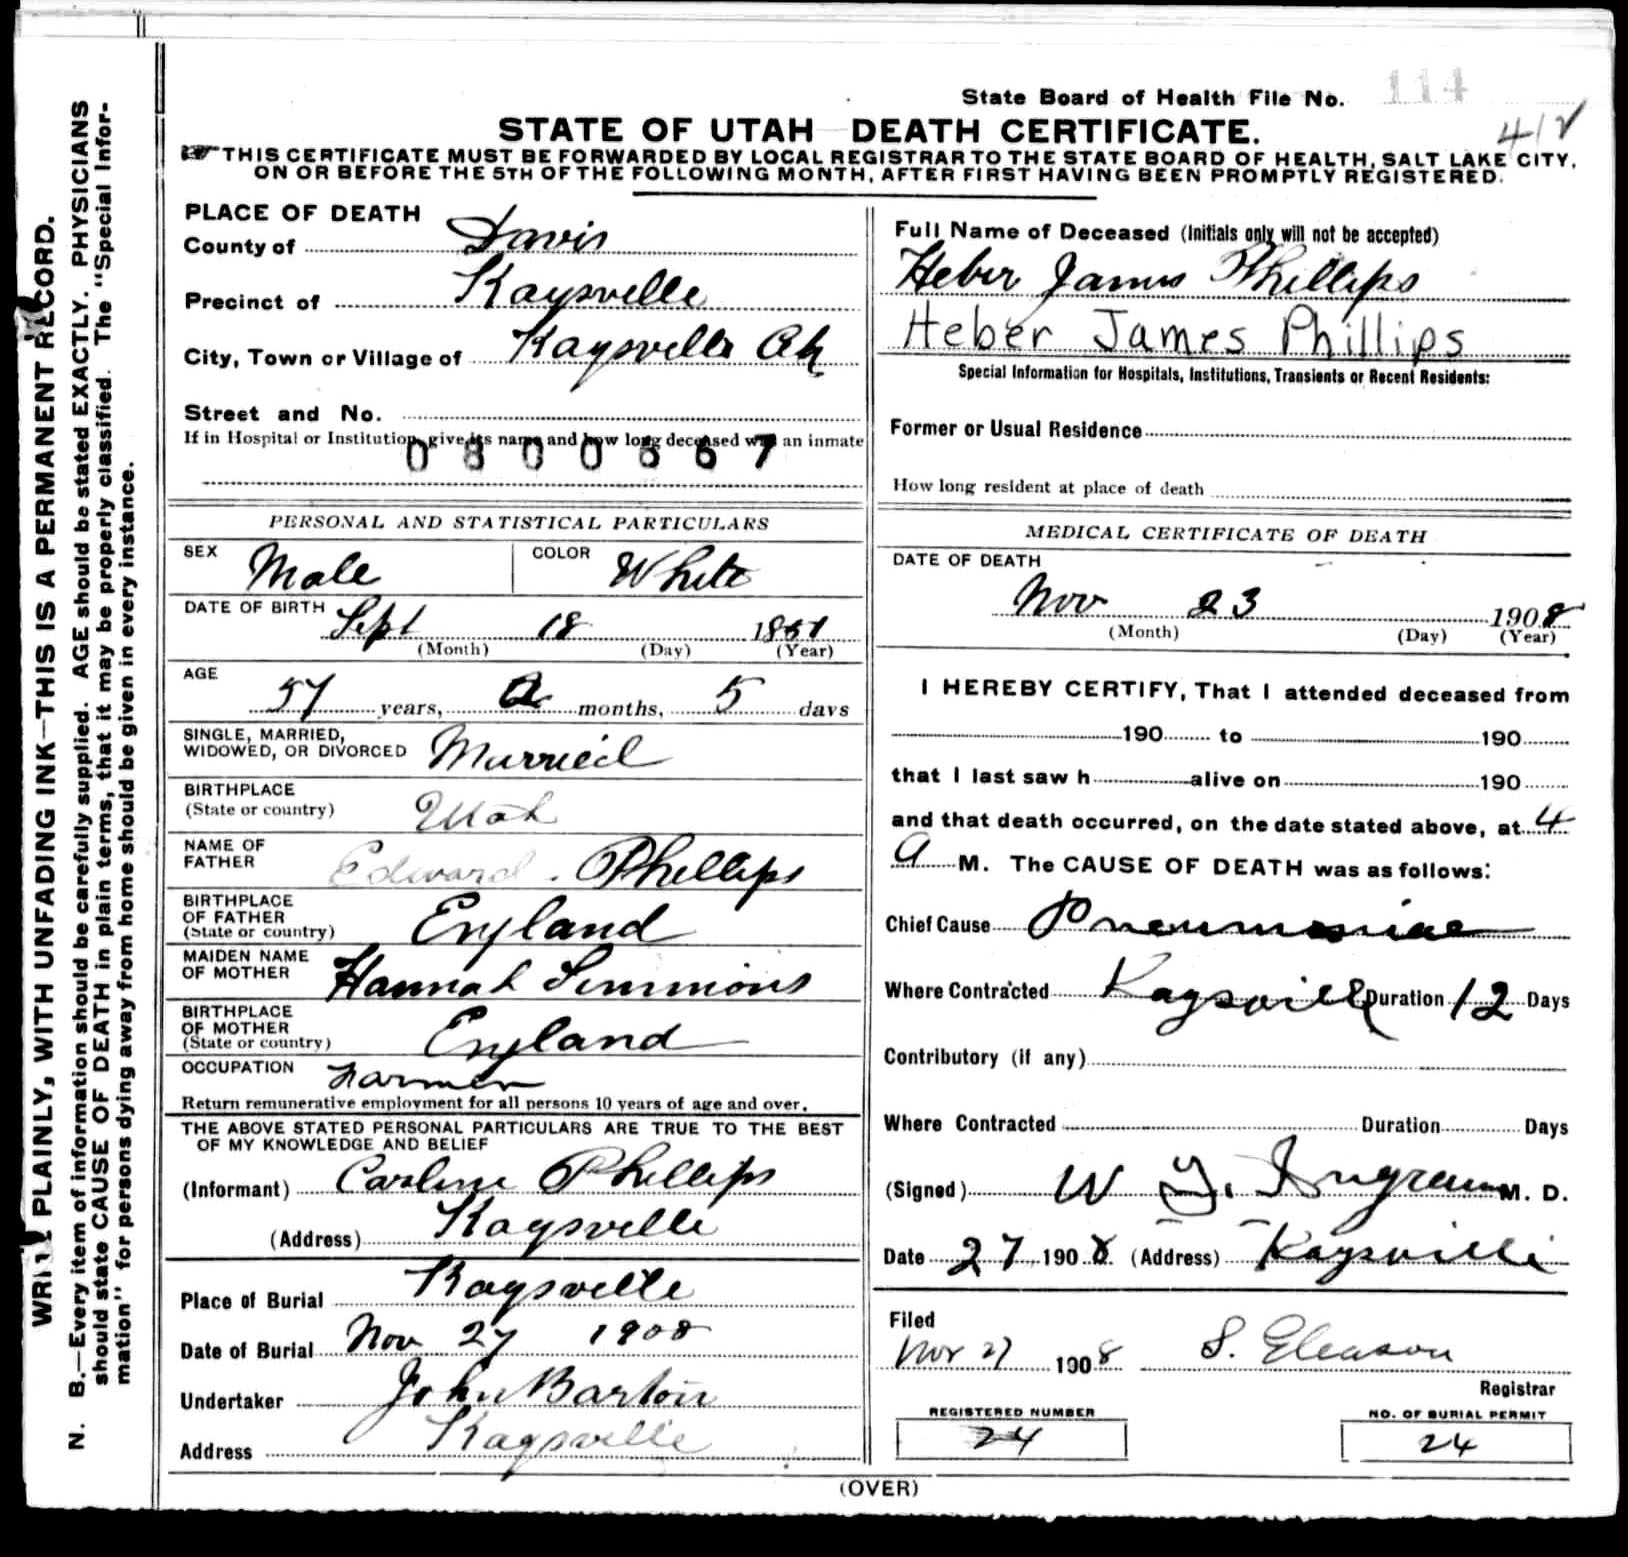 State Board of Health File No. 114
STATE OF UTAH DEATH CERTIFICATE.
THIS CERTIFICATE MUST BE FORWARDED BY LOCAL REGISTRAR TO THE STATE BOARD OF HEALTH, SALT LAKE CITY,
ON OR BEFORE THE 5TH OF THE FOLLOWING MONTH, AFTER FIRST HAVING BEEN PROMPTLY REGISTERED.
WRITE PLAINLY, WITH UNFADING INK—THIS IS A PERMANENT RECORD.
N. B.—Every item of information should be carefully supplied. AGE should be stated EXACTLY. PHYSICIANS
should state CAUSE OF DEATH in plain terms, that it may be properly classified. The "Special Infor-
mation" for persons dying away from home should be given in every instance.
PLACE OF DEATH
County of Davis
Precinct of Kaysville
City, Town or Village of Kaysville
Street and No.
If in Hospital or Institution, give its name and how long deceased was an inmate
PERSONAL AND STATISTICAL PARTICULARS
SEX Male COLOR White
DATE OF BIRTH Sept 18 1851
(Month) (Day) (Year)
AGE
57 years, 2 months, 5 days
SINGLE, MARRIED,
WIDOWED, OR DIVORCED Married
BIRTHPLACE
(State or country) Utah
NAME OF
FATHER Edward Phillips
BIRTHPLACE
OF FATHER
(State or country) England
MAIDEN NAME
OF MOTHER Hannah Simmons
BIRTHPLACE
OF MOTHER
(State or country) England
OCCUPATION Farmer
Return remunerative employment for all persons 10 years of age and over.
THE ABOVE STATED PERSONAL PARTICULARS ARE TRUE TO THE BEST
OF MY KNOWLEDGE AND BELIEF
(Informant) Carline Phillips
(Address) Kaysville
Place of Burial Kaysville
Date of Burial Nov 27 1908
Undertaker John Barton
Address Kaysville
Full Name of Deceased (Initials only will not be accepted)
Heber James Phillips
Heber James Phillips
Special Information for Hospitals, Institutions, Transients or Recent Residents:
Former or Usual Residence
How long resident at place of death
MEDICAL CERTIFICATE OF DEATH
DATE OF DEATH
Nov 23 1908
(Month) (Day) (Year)
I HEREBY CERTIFY, That I attended deceased from
190 to 190
that I last saw h alive on 190
and that death occurred, on the date stated above, at 4
a M. The CAUSE OF DEATH was as follows:
Chief Cause Pneumoniae
Where Contracted Kaysville Duration 12 Days
Contributory (if any)
Where Contracted Duration Days
(Signed) W Y. Ingram M. D.
Date 27 1908 (Address) Kaysville
Filed
Nov 27 1908 S. Gleason
Registrar
REGISTERED NUMBER
24
NO. OF BURIAL PERMIT
24
(OVER)